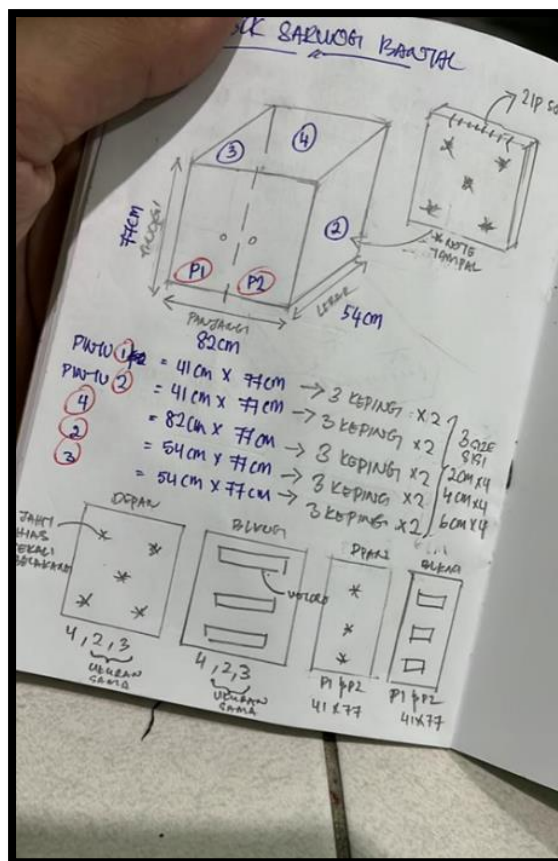 SARUNG BANTAL
ZIP
3
4
2
77cm
TINGGI
P1
P2
* NOTE
TAMPAL
PANJANG
82cm
LEBAR
54cm
PINTU 1 = 41cm x 77cm → 3 KEPING x2
PINTU 2 = 41cm x 77cm → 3 KEPING x2
4 = 82cm x 77cm → 3 KEPING x2
2 = 54cm x 77cm → 3 KEPING x2
3 = 54cm x 77cm → 3 KEPING x2
3 SIZE
SISI
2cm x4
4cm x4
6cm x4
DEPAN
BLKNG
DPAN
BLKNG
JAHIT
HIAS
SEKALI
BELAKANG
VELCRO
4, 2, 3
UKURAN
SAMA
4, 2, 3
UKURAN
SAMA
P1 & P2
41x77
P1 & P2
41x77